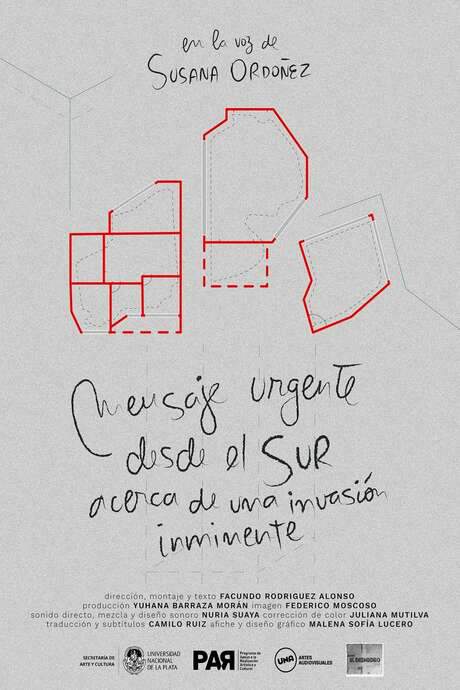 en la voz de
SUSANA ORDOÑEZ
Mensaje urgente
desde el SUR
acerca de una invasión
inminente
dirección, montaje y texto FACUNDO RODRIGUEZ ALONSO
producción YUHANA BARRAZA MORÁN imagen FEDERICO MOSCOSO
sonido directo, mezcla y diseño sonoro NURIA SUAYA corrección de color JULIANA MUTILVA
traducción y subtítulos CAMILO RUIZ afiche y diseño gráfico MALENA SOFÍA LUCERO
SECRETARÍA DE
ARTE Y CULTURA
UNIVERSIDAD
NACIONAL
DE LA PLATA
PAR
Programa de
Apoyo a la
Realización
Artística y
Cultural
UNA
ARTES
AUDIOVISUALES